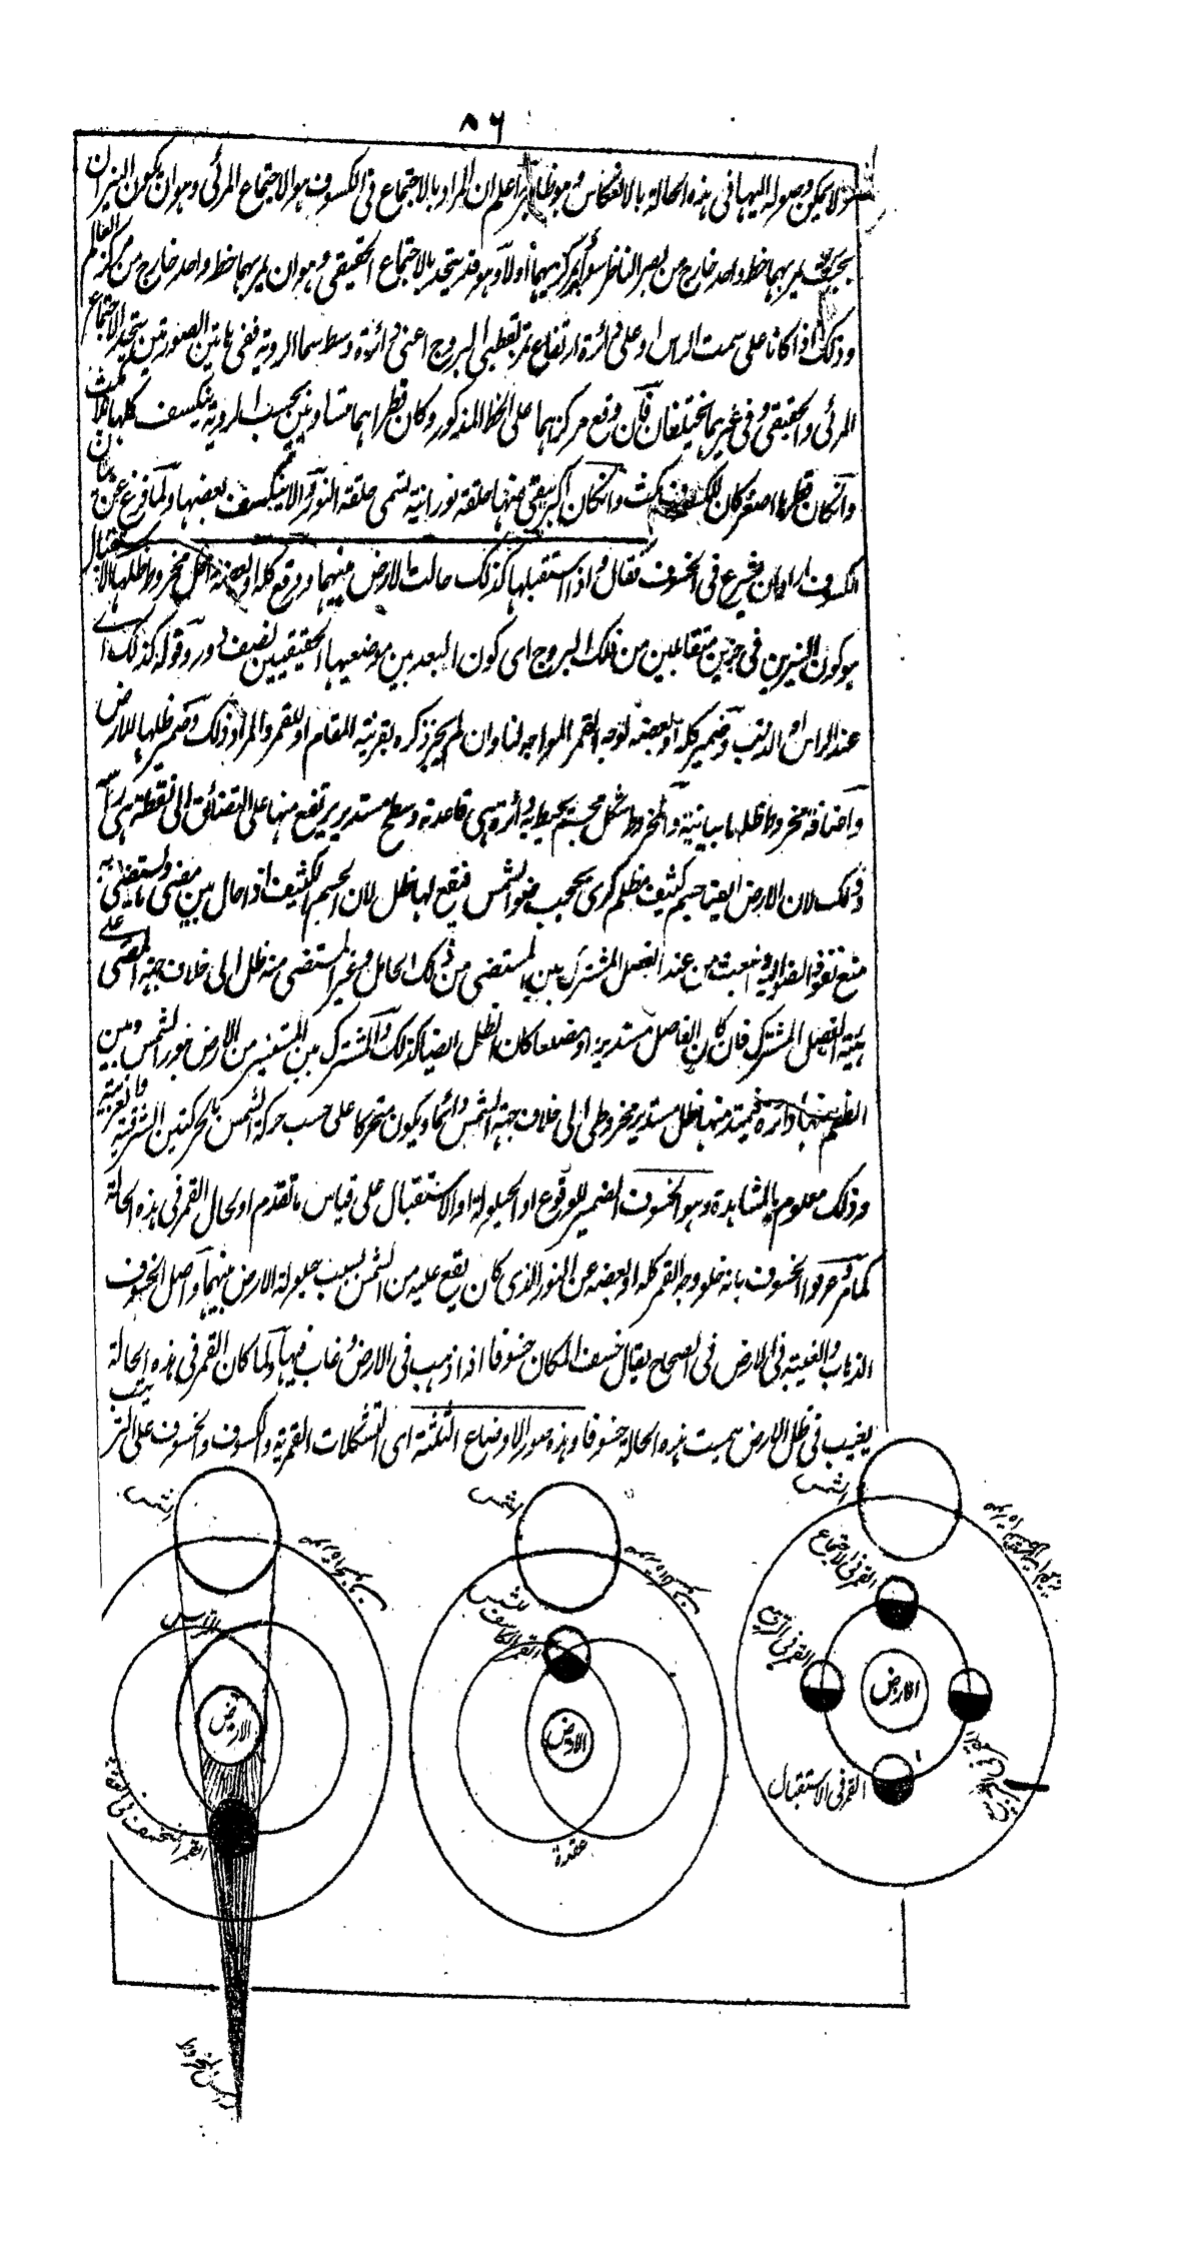 ٨٦
لا يمكن وصوله اليها فى هذه الحالة بالانعكاس وهو ظاهر اعلم ان المراد بالاجتماع فى الكسوف هو الاجتماع المرئى وهو ان يكون النيران
بحيث يمر بهما خط واحد خارج من بصر الناظر سواء مر بمركزيهما اولا وهو قد يتحد بالاجتماع الحقيقى وهو ان يمر بهما خط واحد خارج من مركز العالم
وذلك اذا كانا على سمت الراس او على دائرة ارتفاع تمر بقطبى البروج اعنى دائرة وسط سماء الروية ففى هاتين الصورتين يتحد الاجتماع
المرئى والحقيقى وفى غيرهما يختلفان فان وقع مركزاهما على الخط المذكور وكان قطراهما متساويين بحسب الروية ينكسف كلها بلا مكث
وان كان قطرها اصغر كان للكسوف مكث وان كان اكبر يبقى منها حلقة نورانية تسمى حلقة النور والا ينكسف بعضها ولما فرغ عن بيان
الكسوف اراد ان يشرع فى الخسوف فقال واذا استقبلها كذلك حالت الارض بينهما ووقع كله او بعضه داخل مخروط ظلها الاستقبال
هو كون النيرين فى جزئين متقابلين من فلك البروج اى كون البعد بين موضعيهما الحقيقيين نصف دور وقوله كذلك اى
عند الراس او الذنب وضمير كله او بعضه لوجه القمر المواجه لنا وان لم يجر ذكره بقرينة المقام او للقمر والمراد ذلك وضمير ظلها للارض
واضافة مخروط ظلها بيانية والمخروط شكل مجسم يحيط به دائرة هى قاعدته وسطح مستدير يرتفع منها على التضائق الى نقطة هى راسه
وذلك لان الارض ايضا جسم كثيف مظلم كرى يحجب ضوء الشمس فيقع لها ظل لان الجسم الكثيف اذا حال بين مضئ ومستضئ به
منع نفوذ الضوء اليه وينبعث من عند الفصل المشترك بين المستضئ من ذلك الحائل وغير المستضئ منه ظل الى خلاف جهة المضئ على
هيئة الفصل المشترك فان كان الفاصل مستديرا او مضلعا كان الظل ايضا كذلك والمشترك بين المستنير من الارض بنور الشمس وبين
المظلم منها دائرة فيمتد منها ظل مستدير مخروطى الى خلاف جهة الشمس دائما ويكون متحركا على حسب حركة الشمس بالحركتين الشرقية والغربية
وذلك معلوم بالمشاهدة وهو الخسوف الضمير للوقوع او الحيلولة او الاستقبال على قياس ما تقدم او لحال القمر فى هذه الحالة
كما مر عرفوا الخسوف بانه خلو وجه القمر كله او بعضه عن النور الذى كان يقع عليه من الشمس بسبب حيلولة الارض بينهما واصل الخسوف
الذهاب والغيبة فى الارض فى الصحاح يقال خسف المكان خسوفا اذا ذهب فى الارض وغاب فيها ولما كان القمر فى هذه الحالة
يغيب فى ظل الارض سميت هذه الحالة خسوفا وهذه صور الاوضاع الثلثة اى التشكلات القمرية والكسوف والخسوف على الترتيب
الشمس
الشمس
الشمس
القمر فى الاجتماع
القمر فى التربيع
الارض
القمر فى الاستقبال
القمر الكاسف للشمس
الارض
عقدة
الراس
الارض
القمر المنخسف فى العقدة
راس المخروط